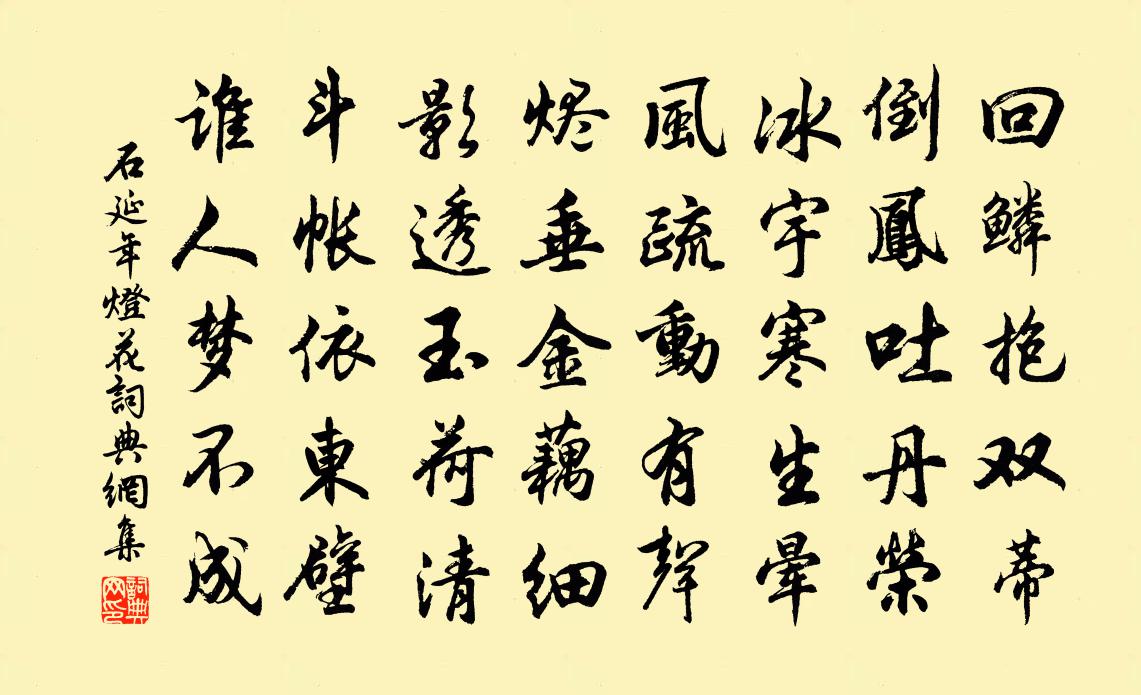 回鳞抱双蒂
倒鳳吐丹榮
冰宇寒生暈
風疏動有聲
烬垂金藕细
影透玉荷清
斗帐依東壁
谁人梦不成
石延年燈花詞典網集
詞典网印